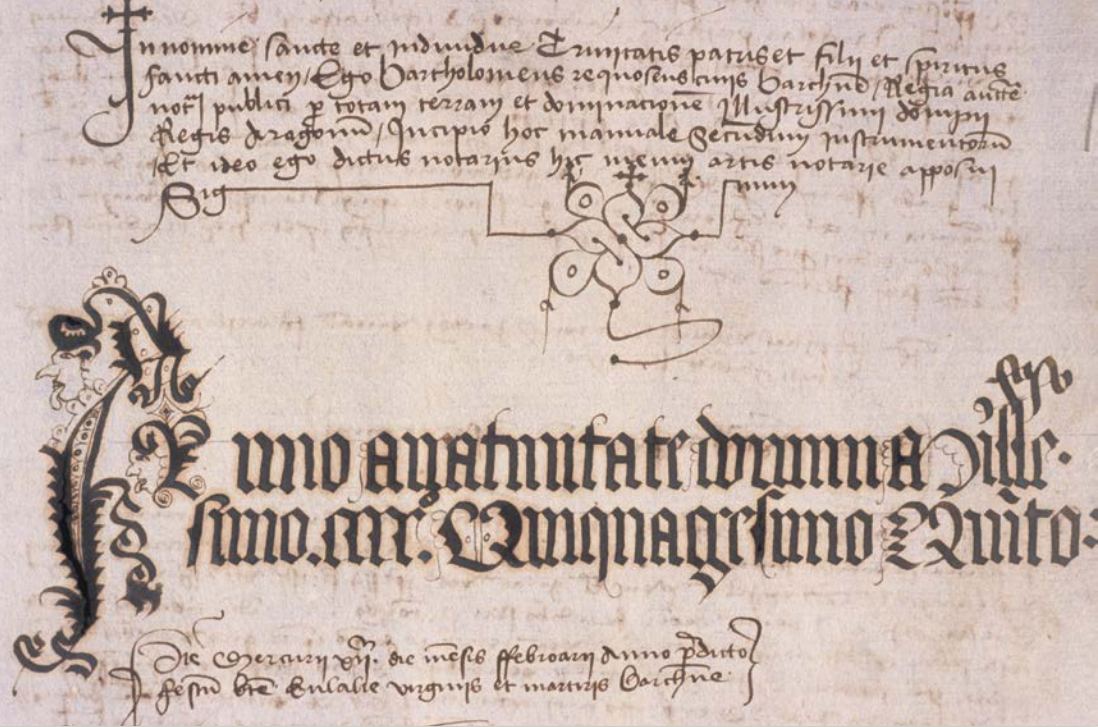 In nomine sancte et individue Trinitatis patris et filii et spiritus
sancti amen / Ego Bartholomeus Requesens civis Barchñe / Regia aucte
notʳ publici p totam terram et dominacionē Illustrissimi dompni
Regis Aragonū / Incipio hoc manuale Secūdum instrumentorū
Et ideo ego dictus notarius hic meum artis notarie apposui
Sig num
Anno a nativitate domini Mille-
simo .CCCC. Quinquagesimo Quīto.
Die Mercurii XII. die mēsis ffebroarii Anno p̄dicto
festū btē Eulalie virginis et martiris Barchñe